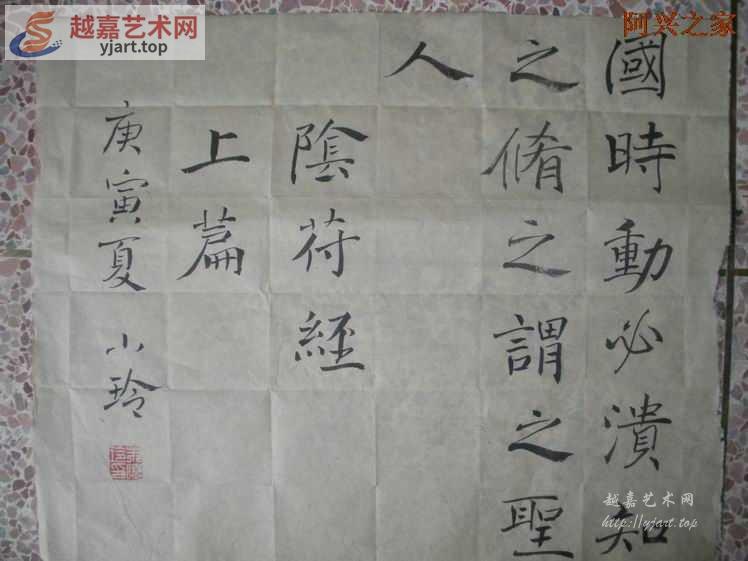 國時動必潰知
之脩之謂之聖
人
陰苻経
上篇
庚寅夏 小玲
越嘉艺术网
yjart.top
阿兴之家
越嘉艺术网
http://yjart.top